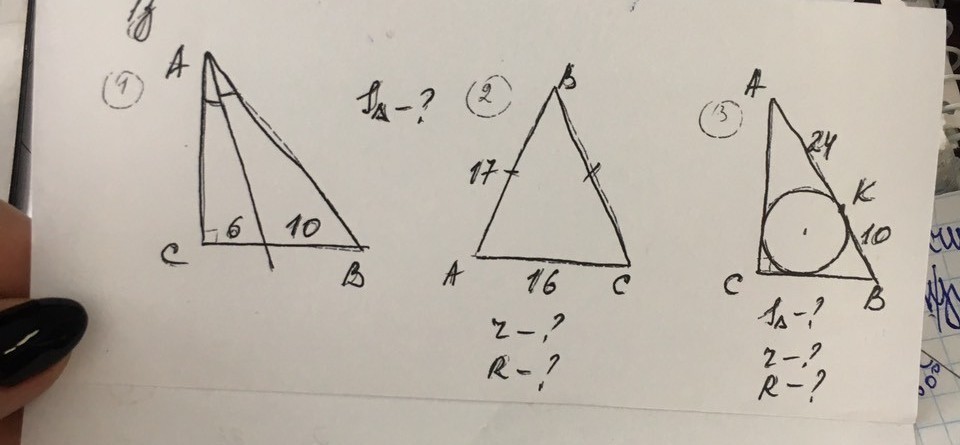 1
A
6
10
C
B
S△ - ?
2
B
17
A
16
C
r - ?
R - ?
3
A
24
K
10
C
B
S△ - ?
r - ?
R - ?